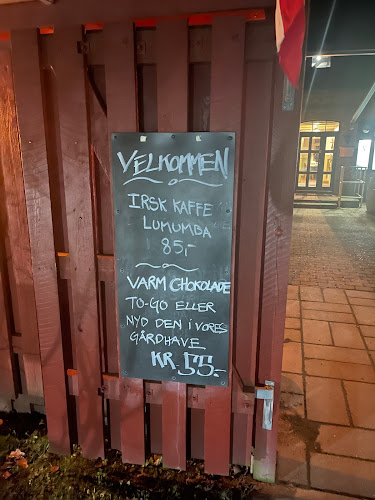 VELKOMMEN
IRSK KAFFE
LUMUMBA
85,-
VARM CHOKOLADE
TO-GO ELLER
NYD DEN I VORES
GÅRDHAVE
KR 55,-